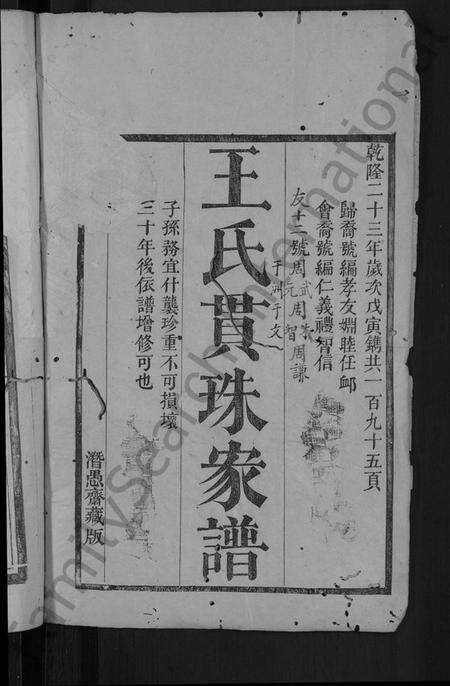 乾隆二十三年歲次戊寅鐫共一百九十五頁
歸裔號編孝友婣睦任卹
會裔號編仁義禮智信
友十二號周
周
智周謙
王氏貫珠家譜
子孫務宜什襲珍重不可損壞
三十年後依譜增修可也
潛愚齋藏版
FamilySearch International